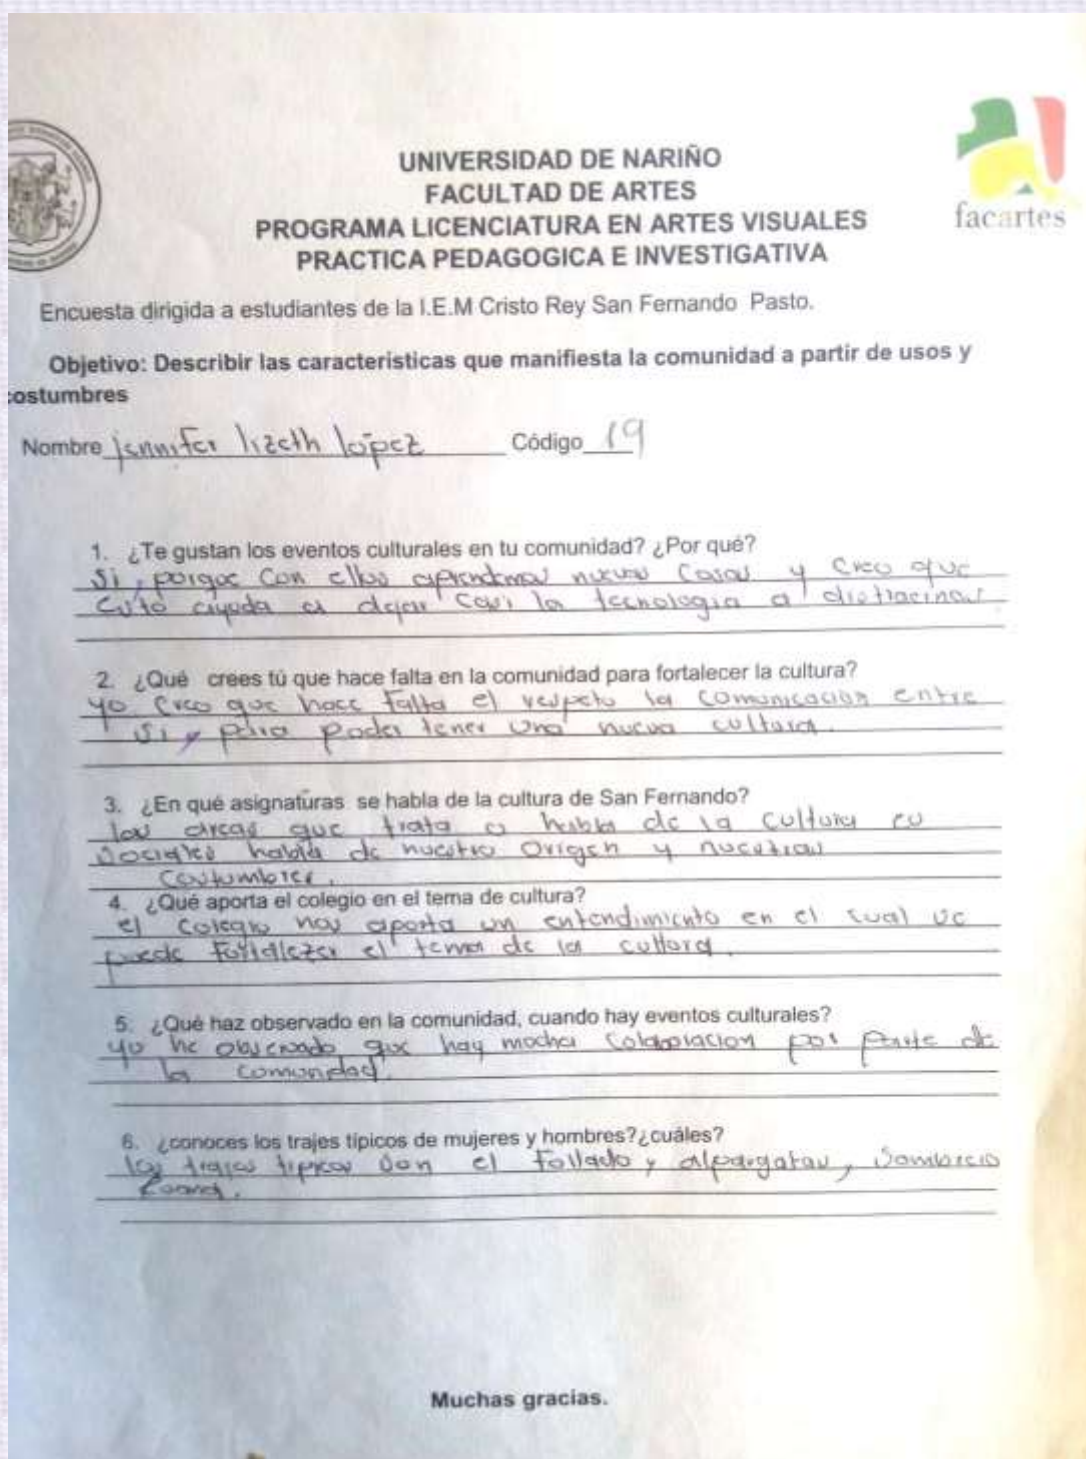 UNIVERSIDAD DE NARIÑO
FACULTAD DE ARTES
PROGRAMA LICENCIATURA EN ARTES VISUALES
PRACTICA PEDAGOGICA E INVESTIGATIVA
facartes
Encuesta dirigida a estudiantes de la I.E.M Cristo Rey San Fernando Pasto.
Objetivo: Describir las caracteristicas que manifiesta la comunidad a partir de usos y
costumbres
Nombre jennifer lizeth lopez Código 19
1. ¿Te gustan los eventos culturales en tu comunidad? ¿Por qué?
Si, porque con ellos aprendemos nuevas cosas y creo que
esto ayuda a dejar casi la tecnologia a
2. ¿Qué crees tú que hace falta en la comunidad para fortalecer la cultura?
yo creo que hace falta el respeto la comunicacion entre
si, para poder tener una nueva cultura.
3. ¿En qué asignaturas se habla de la cultura de San Fernando?
las areas que trata o habla de la cultura es
sociales habla de nuestro origen y nuestras
costumbres.
4. ¿Qué aporta el colegio en el tema de cultura?
el colegio nos aporta un entendimiento en el cual se
puede fortalezer el tema de la cultura.
5. ¿Qué haz observado en la comunidad, cuando hay eventos culturales?
yo he observado que hay mocha colaboracion por parte de
la comunidad.
6. ¿conoces los trajes típicos de mujeres y hombres?¿cuáles?
los trajes tipicos son el follado y alpargatas, sombrero
Muchas gracias.